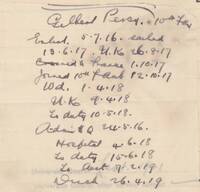 Gilbert Percy - 10th Fax
Enlist. 5.7.16. sailed
13.6.17. U.K 26.9.17
France 1.10.17
Joined 10th 12.10.17
Wd. 1.4.18
U.K 9.4.18
To duty 10.5.18
24.5.16.
Hospital 4.6.18
To duty 10.6.18
To Aust 7.2.19
Disch 26.4.19